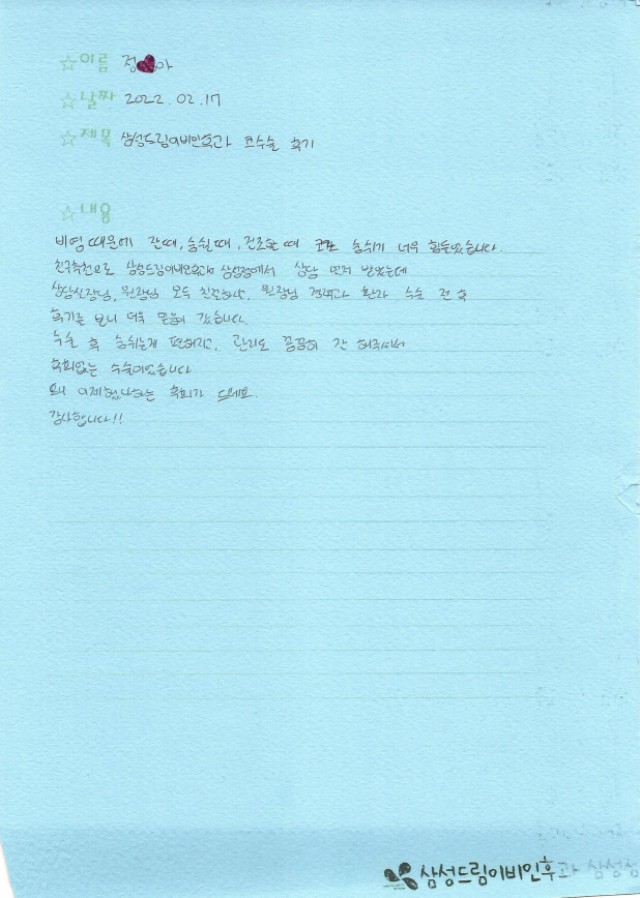 ☆이름 정♥아
☆날짜 2022.02.17
☆제목 삼성드림이비인후과 코수술 후기
☆내용
비염때문에 잘때, 숨쉴때, 건조할 때 코로 숨쉬기 너무 힘들었습니다.
친구추천으로 삼성드림이비인후과 삼성점에서 상담 먼저 받았는데
상담실장님, 원장님 모두 친절하시고, 원장님 경력과 환자 수술 전 후
후기를 보니 더욱 믿음이 갔습니다.
수술 후 숨쉬는게 편해지고, 관리도 꼼꼼히 잘 해주셔서
후회없는 수술이었습니다
왜 이제했나하는 후회가 드네요.
감사합니다!!
삼성드림이비인후과 삼성점